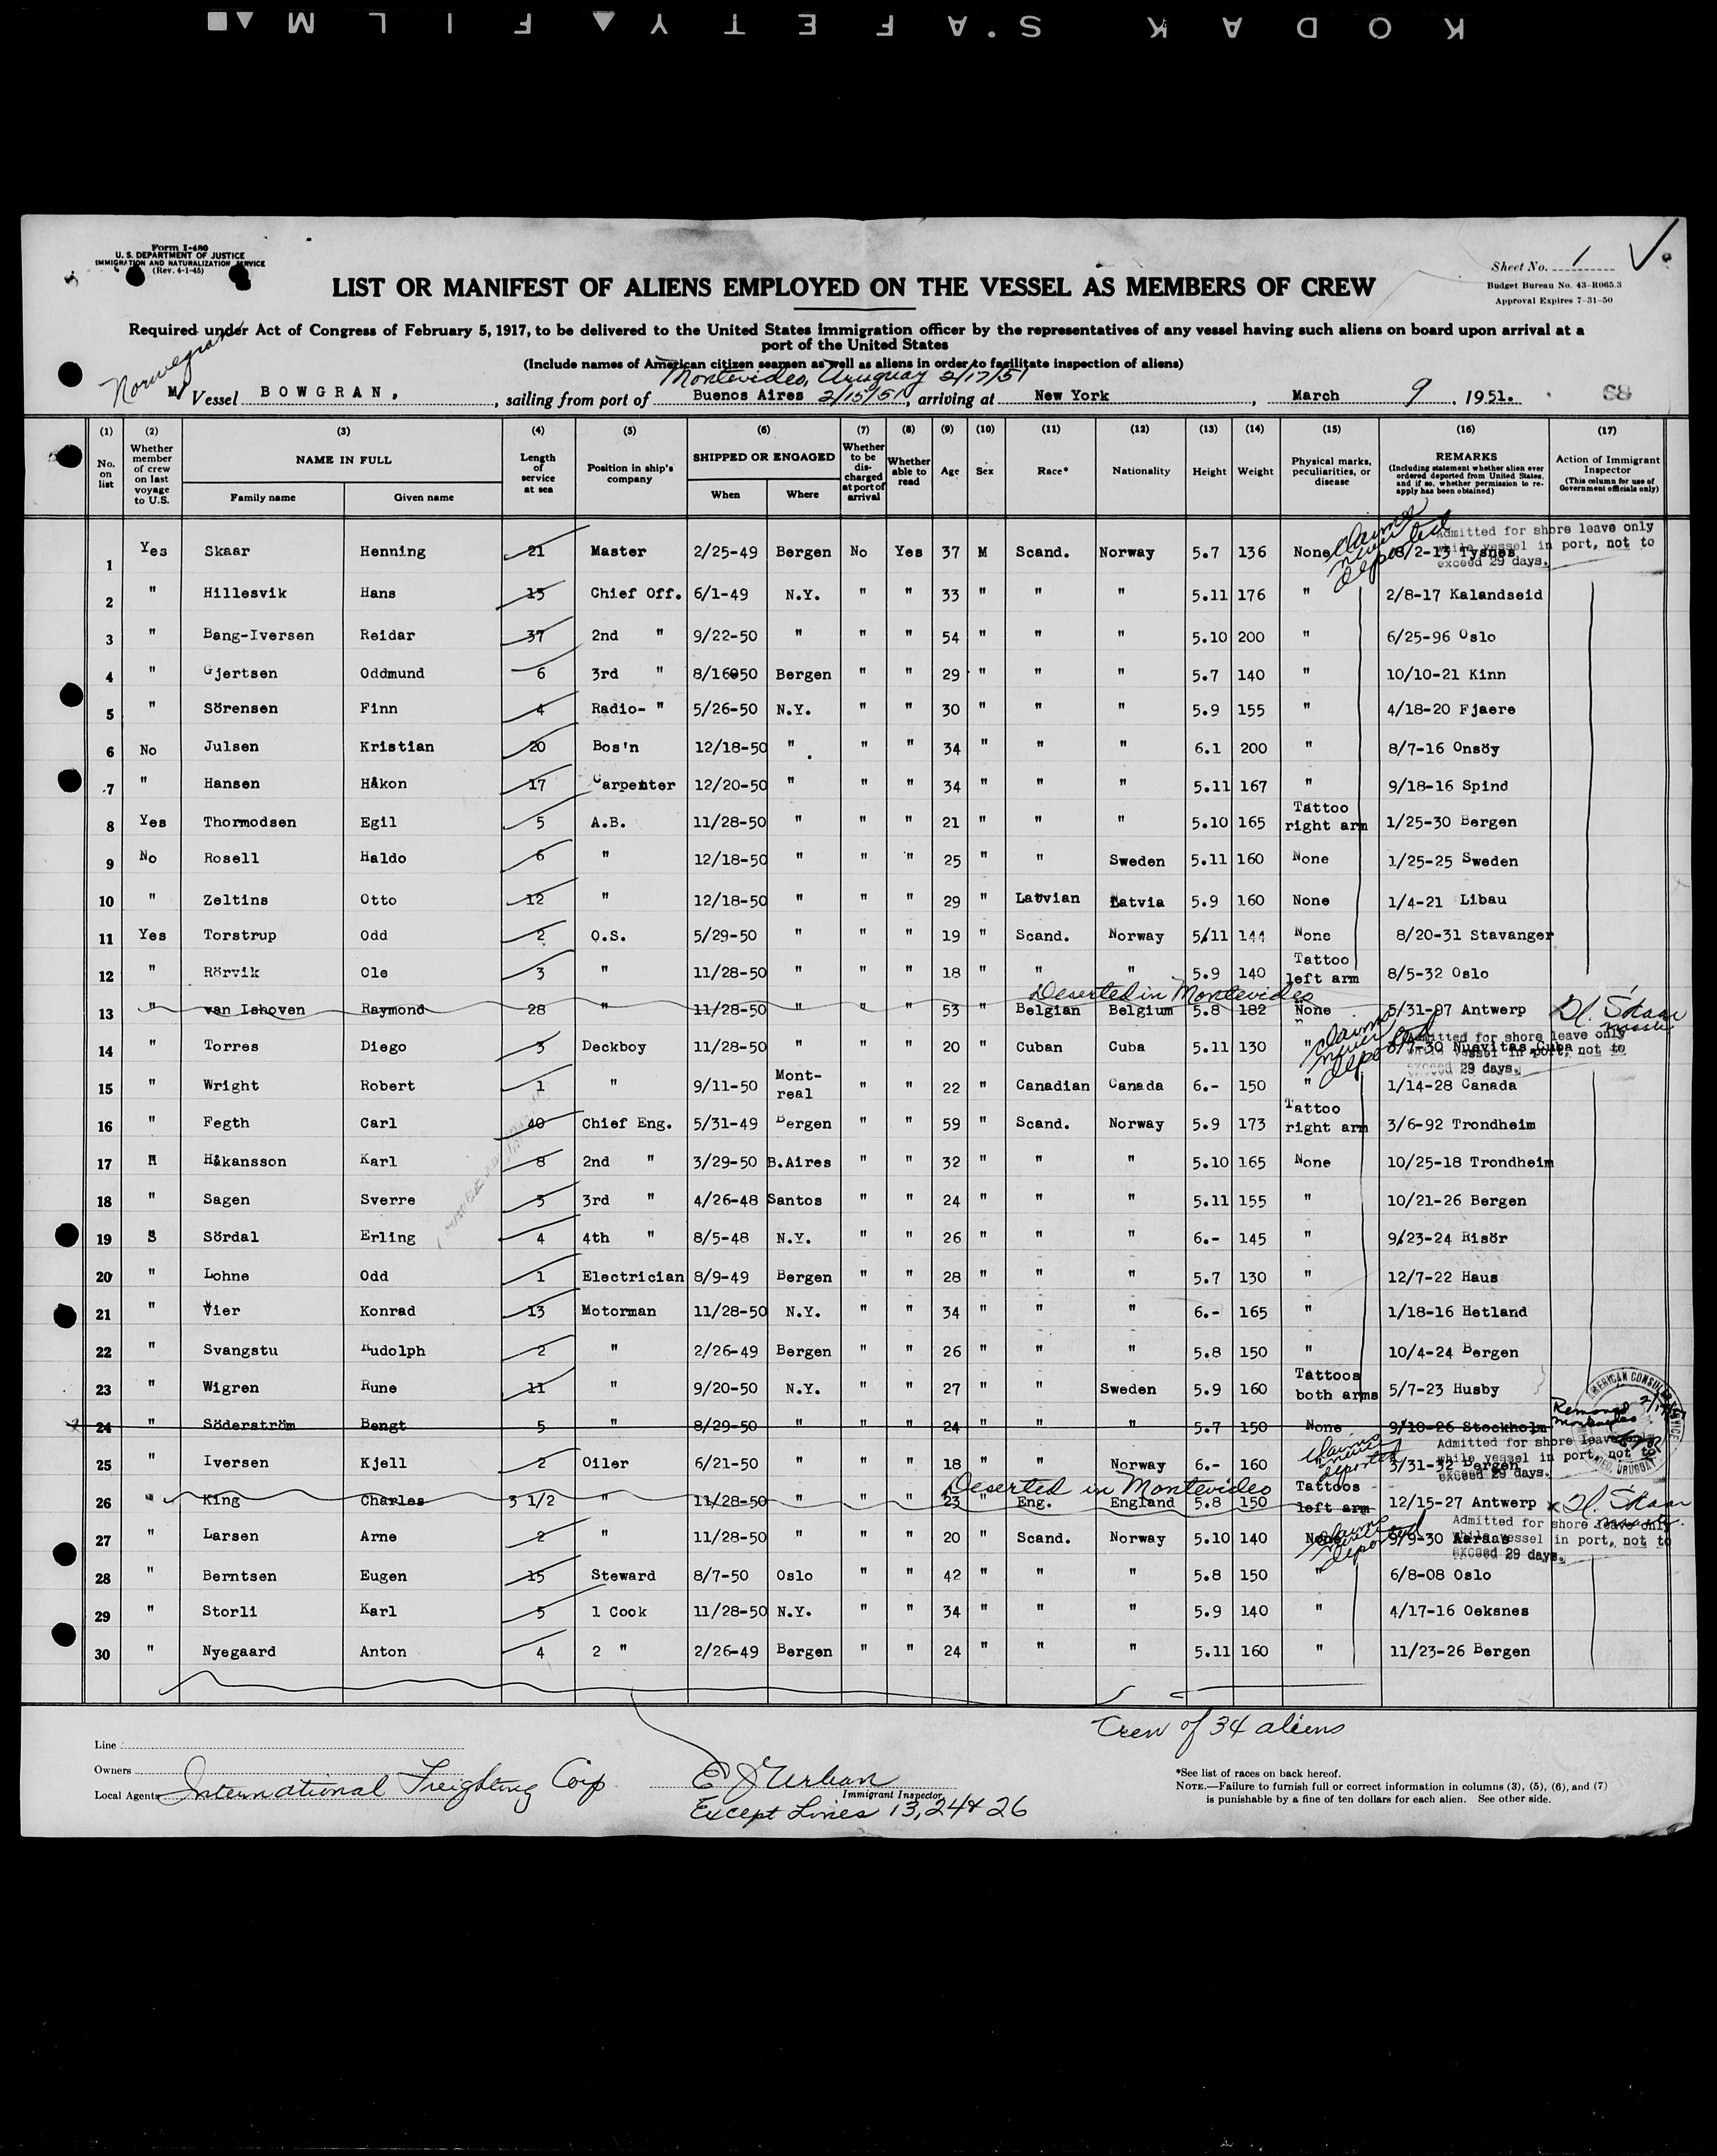 KODAK SAFETY FILM
Form I-480
U. S. DEPARTMENT OF JUSTICE
IMMIGRATION AND NATURALIZATION SERVICE
(Rev. 4-1-45)
Sheet No. 1
Budget Bureau No. 43-R065.3
Approval Expires 7-31-50
LIST OR MANIFEST OF ALIENS EMPLOYED ON THE VESSEL AS MEMBERS OF CREW
Required under Act of Congress of February 5, 1917, to be delivered to the United States immigration officer by the representatives of any vessel having such aliens on board upon arrival at a
port of the United States
(Include names of American citizen seamen as well as aliens in order to facilitate inspection of aliens)
Norwegian
Montevideo, Uruguay 2/17/51
M/ Vessel BOWGRAN, , sailing from port of Buenos Aires 2/15/51, arriving at New York , March 9 , 1951. 68
(1) (2) (3) (4) (5) (6) (7) (8) (9) (10) (11) (12) (13) (14) (15) (16) (17)
No. on list
Whether member of crew on last voyage to U.S.
NAME IN FULL
Family name Given name
Length of service at sea
Position in ship's company
SHIPPED OR ENGAGED
When Where
Whether to be discharged at port of arrival
Whether able to read
Age Sex Race* Nationality Height Weight
Physical marks, peculiarities, or disease
REMARKS
(Including statement whether alien ever ordered deported from United States, and if so, whether permission to re-apply has been obtained)
Action of Immigrant Inspector
(This column for use of Government officials only)
claims never deported
Admitted for shore leave only
while vessel in port, not to
exceed 29 days.
1 Yes Skaar Henning 21 Master 2/25-49 Bergen No Yes 37 M Scand. Norway 5.7 136 None 8/2-13 Tysnes
2 " Hillesvik Hans 15 Chief Off. 6/1-49 N.Y. " " 33 " " " 5.11 176 " 2/8-17 Kalandseid
3 " Bang-Iversen Reidar 37 2nd " 9/22-50 " " " 54 " " " 5.10 200 " 6/25-96 Oslo
4 " Gjertsen Oddmund 6 3rd " 8/16-50 Bergen " " 29 " " " 5.7 140 " 10/10-21 Kinn
5 " Sörensen Finn 4 Radio- " 5/26-50 N.Y. " " 30 " " " 5.9 155 " 4/18-20 Fjaere
6 No Julsen Kristian 20 Bos'n 12/18-50 " " " 34 " " " 6.1 200 " 8/7-16 Onsöy
7 " Hansen Håkon 17 Carpenter 12/20-50 " " " 34 " " " 5.11 167 " 9/18-16 Spind
8 Yes Thormodsen Egil 5 A.B. 11/28-50 " " " 21 " " " 5.10 165 Tattoo right arm 1/25-30 Bergen
9 No Rosell Haldo 6 " 12/18-50 " " " 25 " " Sweden 5.11 160 None 1/25-25 Sweden
10 " Zeltins Otto 12 " 12/18-50 " " " 29 " Latvian Latvia 5.9 160 None 1/4-21 Libau
11 Yes Torstrup Odd 2 O.S. 5/29-50 " " " 19 " Scand. Norway 5/11 144 None 8/20-31 Stavanger
12 " Rörvik Ole 3 " 11/28-50 " " " 18 " " " 5.9 140 Tattoo left arm 8/5-32 Oslo
Deserted in Montevideo
13 " van Ishoven Raymond 28 " 11/28-50 " " " 53 " Belgian Belgium 5.8 182 None 5/31-97 Antwerp H. Skaar master
claims never deported
Admitted for shore leave only
while vessel in port, not to
exceed 29 days.
14 " Torres Diego 3 Deckboy 11/28-50 " " " 20 " Cuban Cuba 5.11 130 " 8/7-30 Nuevitas Cuba
15 " Wright Robert 1 " 9/11-50 Mont-real " " 22 " Canadian Canada 6.- 150 " 1/14-28 Canada
16 " Fegth Carl 40 Chief Eng. 5/31-49 Bergen " " 59 " Scand. Norway 5.9 173 Tattoo right arm 3/6-92 Trondheim
17 " Håkansson Karl 8 2nd " 3/29-50 B.Aires " " 32 " " " 5.10 165 None 10/25-18 Trondheim
18 " Sagen Sverre 3 3rd " 4/26-48 Santos " " 24 " " " 5.11 155 " 10/21-26 Bergen
19 " Sördal Erling 4 4th " 8/5-48 N.Y. " " 26 " " " 6.- 145 " 9/23-24 Risör
20 " Lohne Odd 1 Electrician 8/9-49 Bergen " " 28 " " " 5.7 130 " 12/7-22 Haus
21 " Vier Konrad 13 Motorman 11/28-50 N.Y. " " 34 " " " 6.- 165 " 1/18-16 Hetland
22 " Svangstu Rudolph 2 " 2/26-49 Bergen " " 26 " " " 5.8 150 " 10/4-24 Bergen
23 " Wigren Rune 11 " 9/20-50 N.Y. " " 27 " " Sweden 5.9 160 Tattoos both arms 5/7-23 Husby
24 " Söderström Bengt 5 " 8/29-50 " " " 24 " " " 5.7 150 None 9/10-26 Stockholm Removed Montevideo
AMERICAN CONSULAR SERVICE
claims never deported
Admitted for shore leave only
while vessel in port, not to
exceed 29 days.
25 " Iversen Kjell 2 Oiler 6/21-50 " " " 18 " " Norway 6.- 160 3/31-32 Bergen
Deserted in Montevideo
26 " King Charles 3 1/2 " 11/28-50 " " " 23 " Eng. England 5.8 150 Tattoos left arm 12/15-27 Antwerp x H. Skaar master.
claims never deported
Admitted for shore leave only
while vessel in port, not to
exceed 29 days.
27 " Larsen Arne 2 " 11/28-50 " " " 20 " Scand. Norway 5.10 140 None 9/9-30 Aaraas
28 " Berntsen Eugen 15 Steward 8/7-50 Oslo " " 42 " " " 5.8 150 " 6/8-08 Oslo
29 " Storli Karl 5 1 Cook 11/28-50 N.Y. " " 34 " " " 5.9 140 " 4/17-16 Oeksnes
30 " Nyegaard Anton 4 2 " 2/26-49 Bergen " " 24 " " " 5.11 160 " 11/23-26 Bergen
Crew of 34 aliens
Line
Owners
Local Agents International Freighting Corp
E J Urban
Immigrant Inspector
Except Lines 13, 24 & 26
*See list of races on back hereof.
NOTE.—Failure to furnish full or correct information in columns (3), (5), (6), and (7)
is punishable by a fine of ten dollars for each alien. See other side.